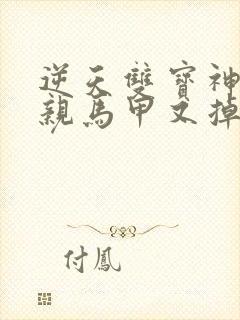 逆天雙寶神
親馬甲又掉
付鳳